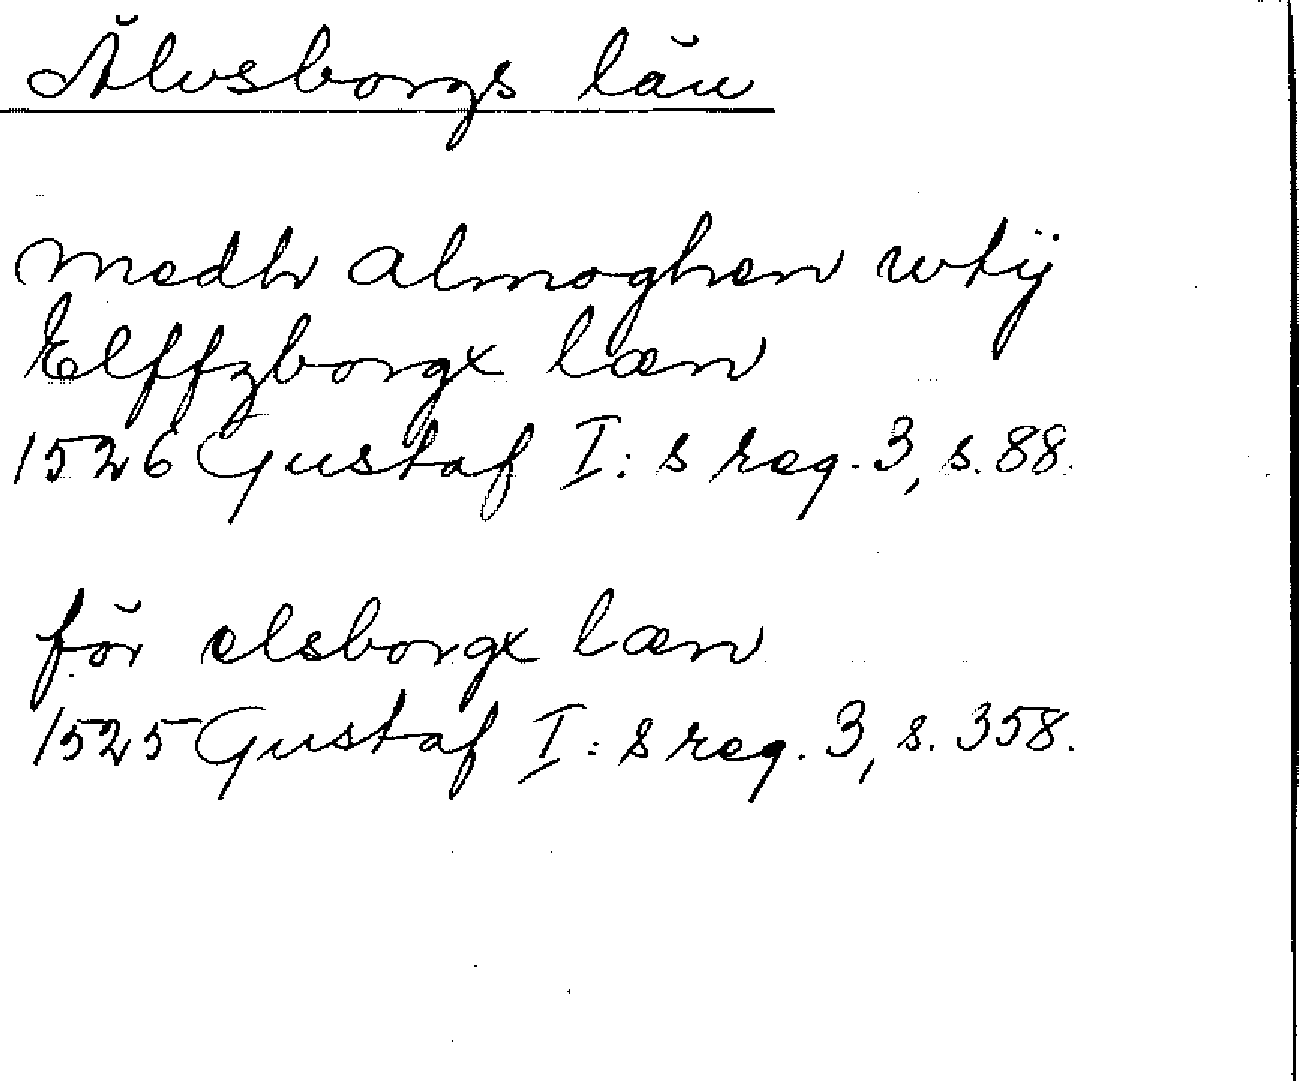 Älvsborgs län
medh almoghen wtij
Elffzborgx læn
1526 Gustaf I:s reg. 3, s. 88.
för elsborgx læn
1525 Gustaf I:s reg. 3, s. 358.